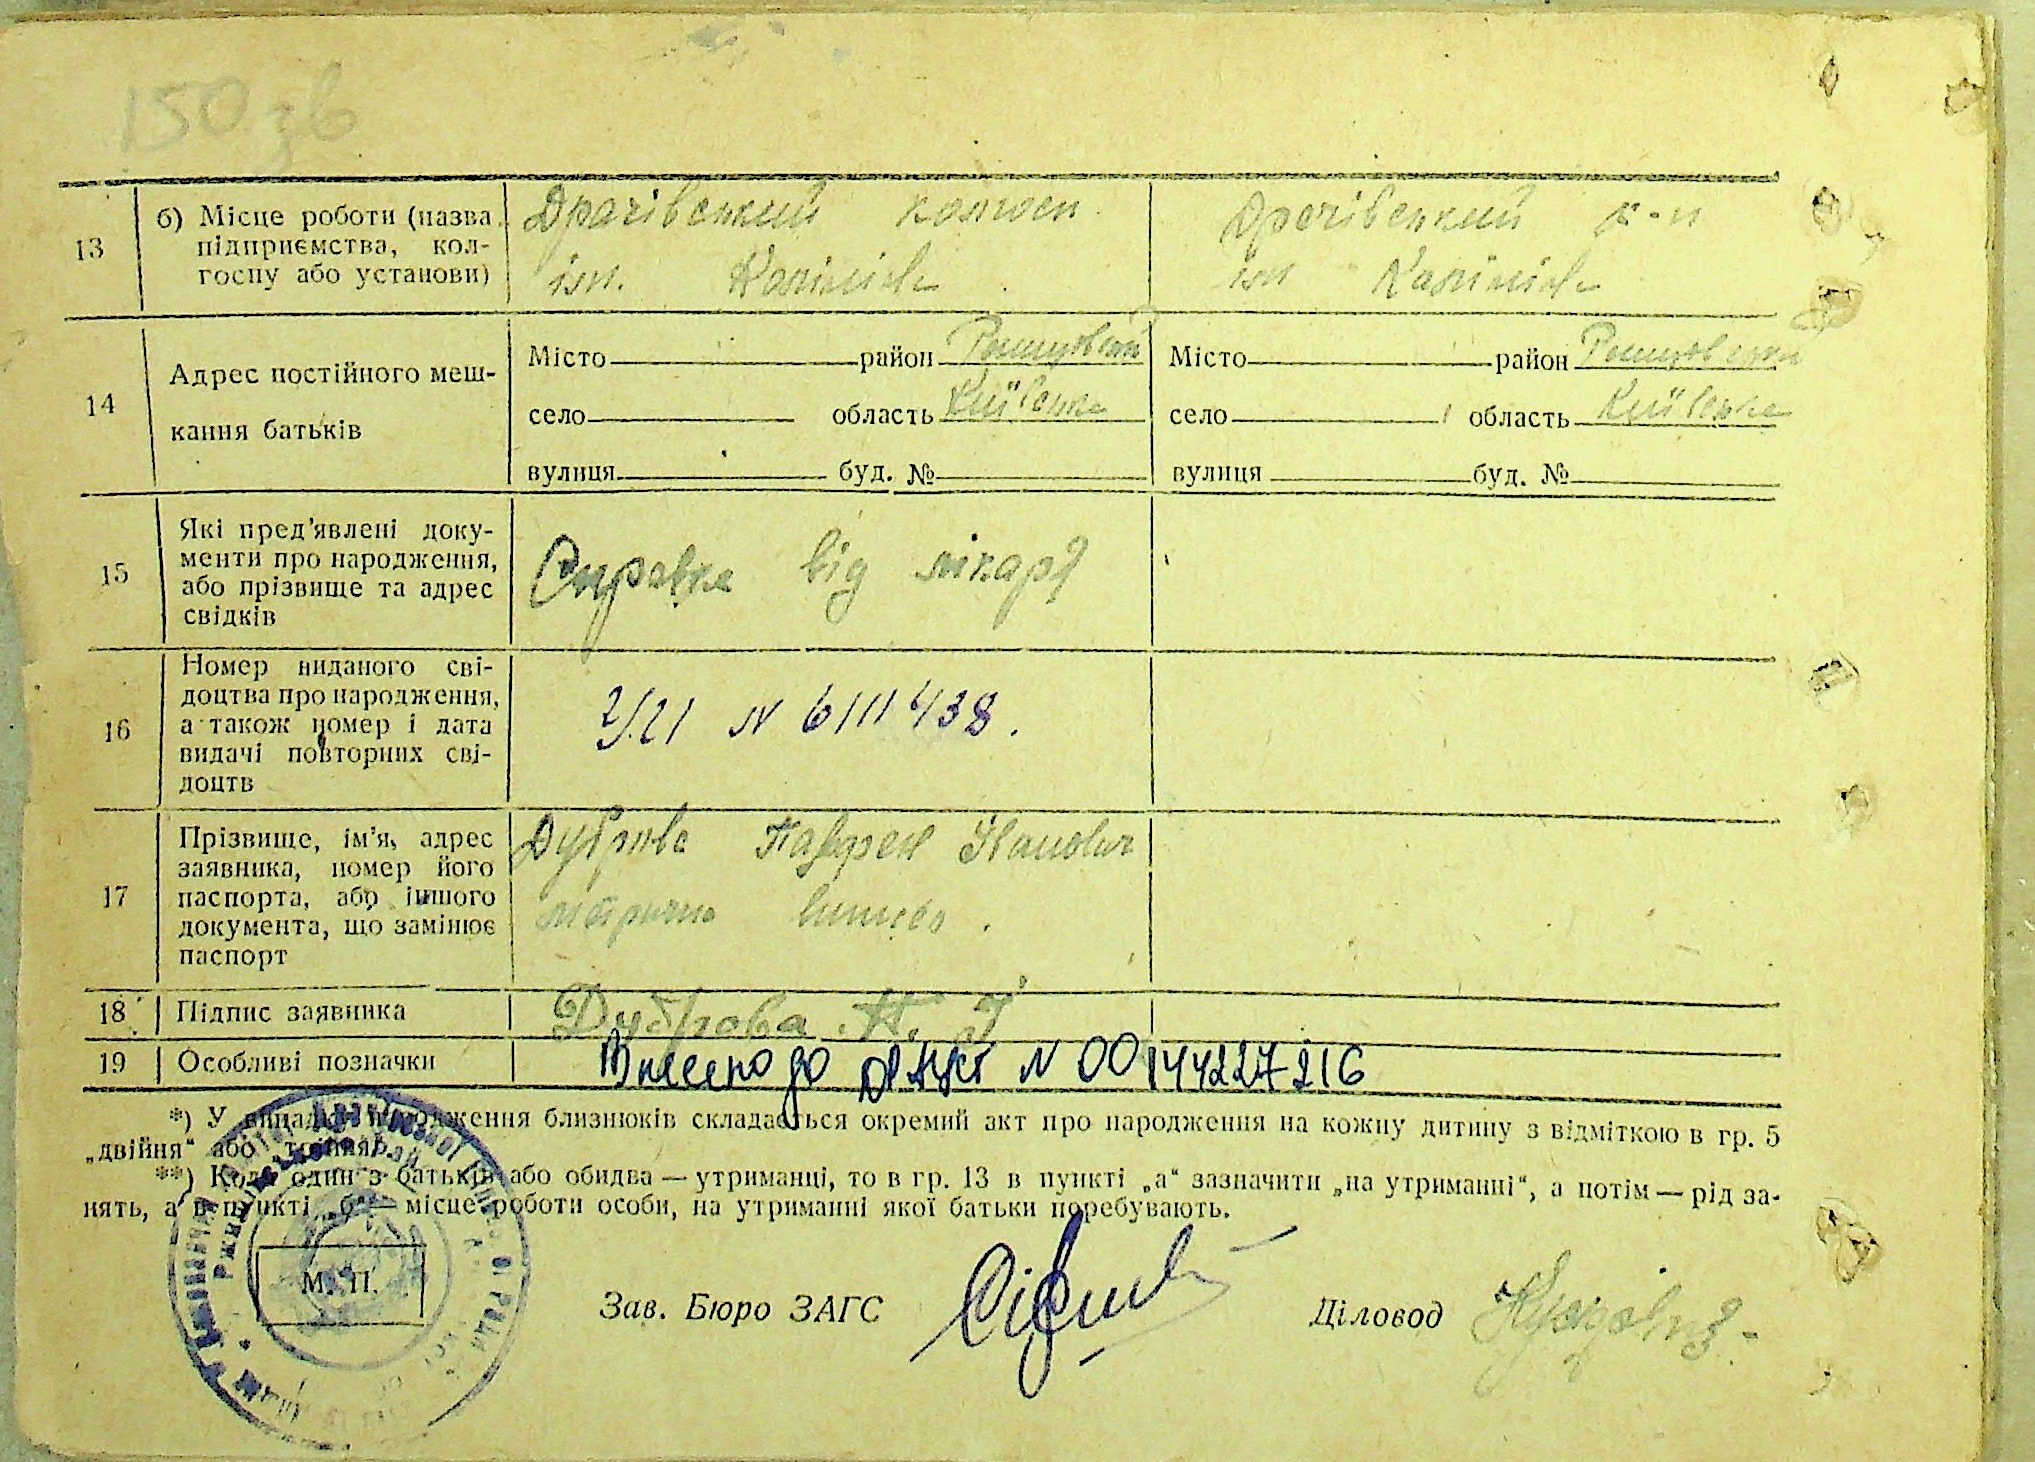 150 зв
13 б) Місце роботи (назва підприємства, кол-
госпу або установи)
Драчівський колгосп
ім. Калініна
Драчівський к-п
ім Калініна
14 Адрес постійного меш-
кання батьків
Місто район
село область Київська
вулиця буд. №
Місто район
село область Київська
вулиця буд. №
15 Які пред'явлені доку-
менти про народження,
або прізвище та адрес
свідків
Справка від лікаря
16 Номер виданого сві-
доцтва про народження,
а також номер і дата
видачі повторних сві-
доцтв
N 6111438.
17 Прізвище, ім'я, адрес
заявника, номер його
паспорта, або іншого
документа, що замінює
паспорт
Дуброва Іванович
18 Підпис заявника
Дуброва
19 Особливі позначки
Внесено до ДРАЦСГ N 00144227216
*) У випадку народження близнюків складається окремий акт про народження на кожну дитину з відміткою в гр. 5
„двійня“ або „трійня“.
**) Коли один з батьків або обидва — утриманці, то в гр. 13 в пункті „а“ зазначити „на утриманні“, а потім — рід за-
нять, а в пункті „б“ — місце роботи особи, на утриманні якої батьки перебувають.
М. П.
Зав. Бюро ЗАГС
Діловод